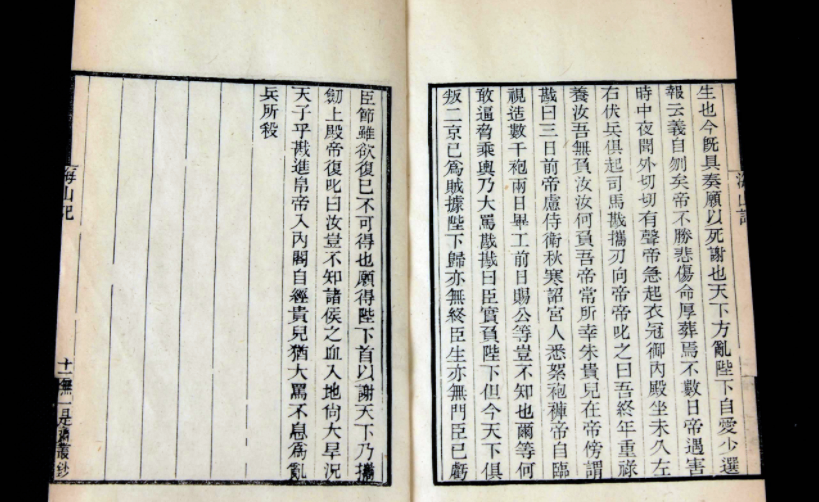 生也今旣具奏願以死謝也天下方亂陛下自愛少選
報云義自刎矣帝不勝悲傷命厚葬焉不數日帝遇害
時中夜聞外切切有聲帝急起衣冠御內殿坐未久左
右伏兵俱起司馬戡攜刃向帝帝叱之曰吾終年重祿
養汝吾無負汝汝何負吾帝常所幸朱貴兒在帝傍謂
戡曰三日前帝慮侍衛秋寒詔宮人悉絮袍褲帝自臨
視造數千袍兩日畢工前日賜公等豈不知也爾等何
敢逼脅乘輿乃大罵戡戡曰臣實負陛下但今天下俱
叛二京已爲賊據陛下歸亦無終臣生亦無門臣已虧
臣節雖欲復已不可得也願得陛下首以謝天下乃攜
劒上殿帝復叱曰汝豈不知諸侯之血入地尙大旱況
天子乎戡進帛帝入內閣自經貴兒猶大罵不息爲亂
兵所殺
海山記
十一
無一是齋叢鈔